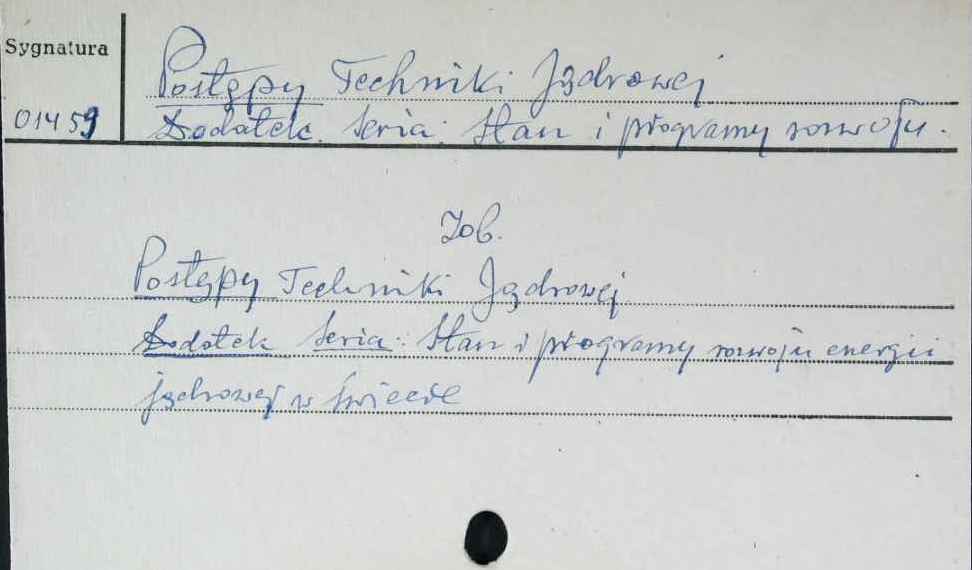 Sygnatura
Postępy Techniki Jądrowej
01459
Dodatek. Seria: Stan i programy rozwoju.
Zob.
Postępy Techniki Jądrowej
Dodatek Seria: Stan i programy rozwoju energii
jądrowej w świecie